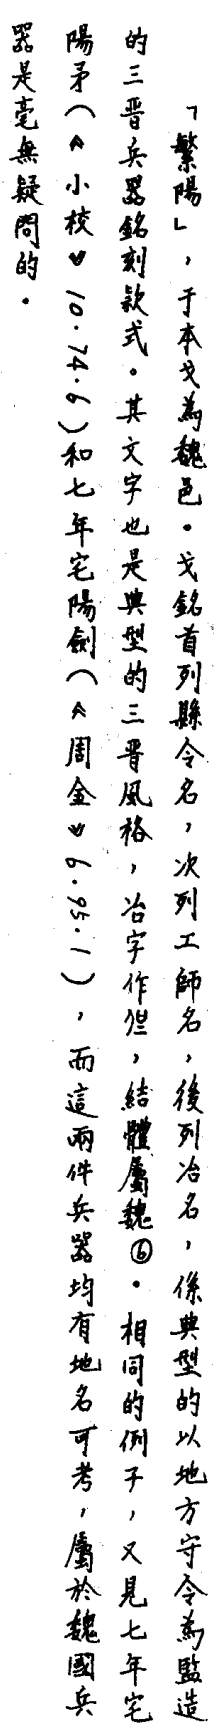 「繁陽」，于本戈為魏邑。戈銘首列縣令名，次列工師名，後列冶名，係典型的以地方守令為監造
的三晉兵器銘刻款式。其文字也是典型的三晉風格，冶字作，結體屬魏⑥。相同的例子，又見七年宅
陽矛（《小校》10·74·6）和七年宅陽劍（《周金》6·95·1），而這兩件兵器均有地名可考，屬於魏國兵
器是毫無疑問的。